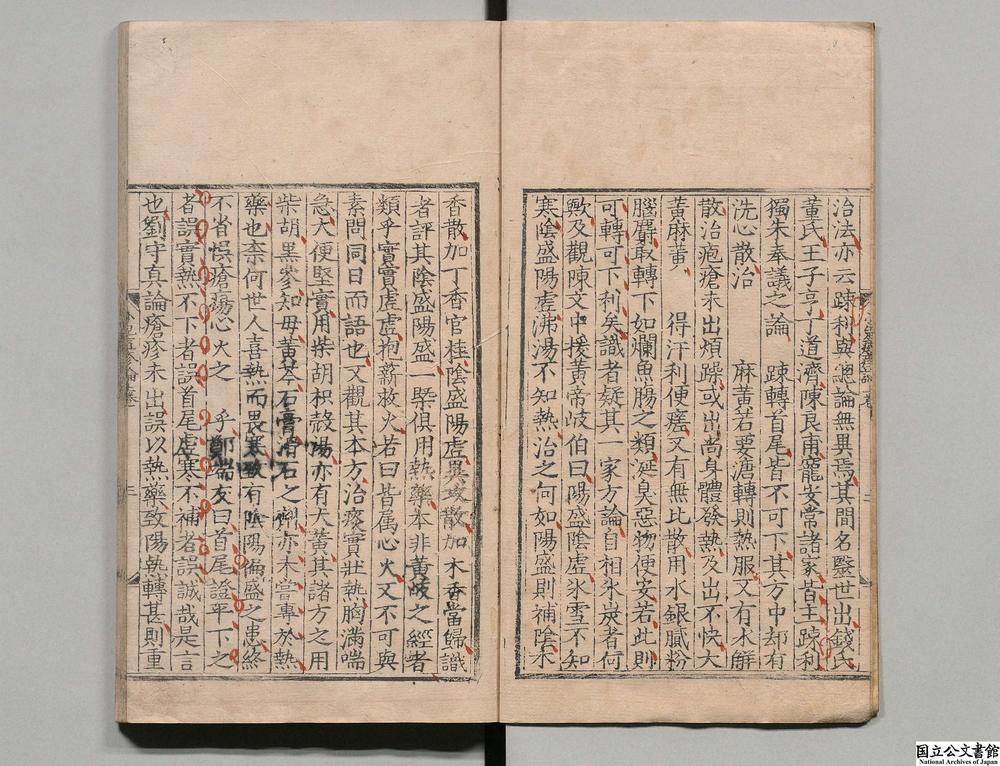 治法亦云疎利與總論無異焉其間名醫世出錢氏
董氏王子亨丁道濟陳良甫龐安常諸家皆主疎利
獨朱奉議之論 疎轉首尾皆不可下其方中却有
洗心散治 麻黄若要溏轉則熱服又有水解
散治疱瘡未出煩躁或出尚身體發熱及出不快大
黄麻黄 得汗利便瘥又有無比散用水銀膩粉
腦麝取轉下如爛魚腸之類涎臭惡物便安若此則
可轉可下利矣識者疑其一家方論自相氷炭者何
歟及觀陳文中援黄帝岐伯曰陽盛陰虚氷雪不知
寒陰盛陽虚沸湯不知熱治之何如陽盛則補陰木
香散加丁香官桂陰盛陽虚異攻散加木香當歸識
者評其陰盛陽盛一槩俱用熱藥本非黄岐之經者
類乎實實虚虚抱薪救火若曰皆爲心火又不可與
素問同日而語也又觀其本方治痰實壯熱胸滿喘
急大便堅實用柴胡枳殼湯亦有大黄其諸方之用
柴胡黑參知母黄芩石膏滑石之劑亦未嘗專於熱
藥也柰何世人喜熱而畏寒致有陰陽偏盛之患終
不省悞瘡瘍心火之 乎鄭端友曰首尾證平下之
者誤實熱不下者誤首尾虚寒不補者誤誠哉是言
也劉守真論瘡疹未出誤以熱藥致陽熱轉甚則重
二
三
国立公文書館
National Archives of Japan